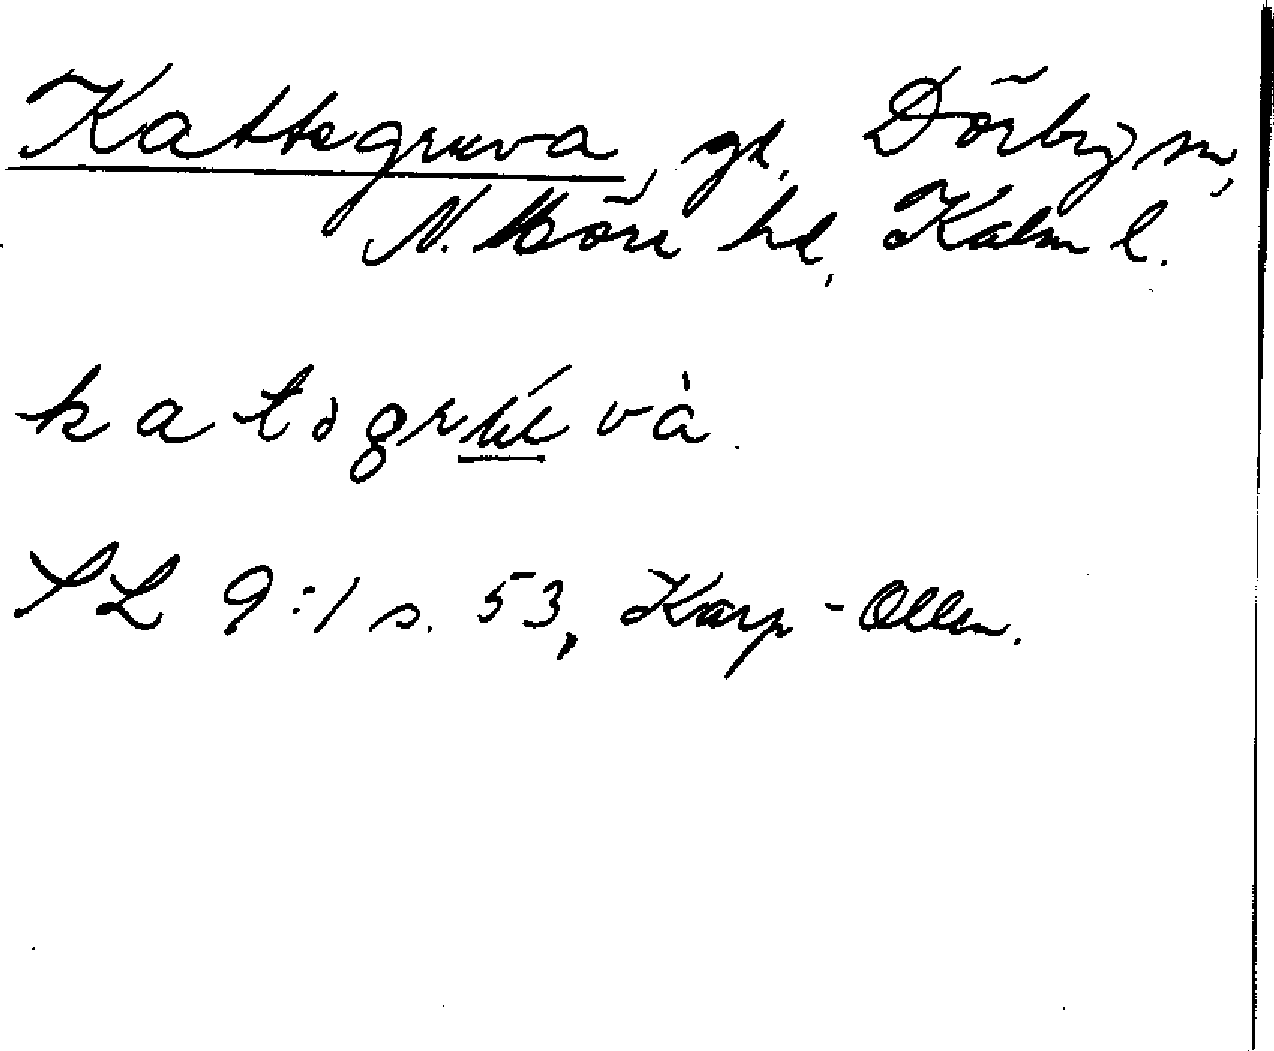 Kattegruva, gd, Dörby sn,
N. Möre hd, Kalm l.
katəgrúvà
SL 9:1 s. 53, Karp-Ollen.